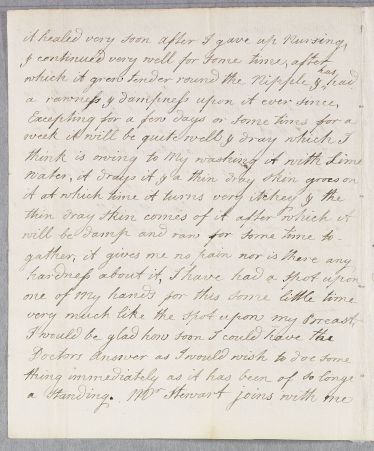 it healed very soon after I gave up Nursing,
& continued very well for some time, after
which it grew tender round the Nipple & has had
a rawness & dampness upon it ever since,
Excepting for a few days or some times for a
week it will be quite well & dray which I
think is owing to my washing it with Lime
Water, it drays it & a thin dray skin groes on
it at which time it turns very itchey & the
thin dray skin comes of it after which it
will be damp and raw for some time to-
gather, it gives me no pain nor is there any
hardness about it, I have had a spot upon
one of my hands for this some little time
very much like the spot upon my Breast,
I would be glad how soon I could have the
Doctors answer as I would wish to doe some
thing immediately as it has been of so longe
a standing. Mr Stewart joins with me